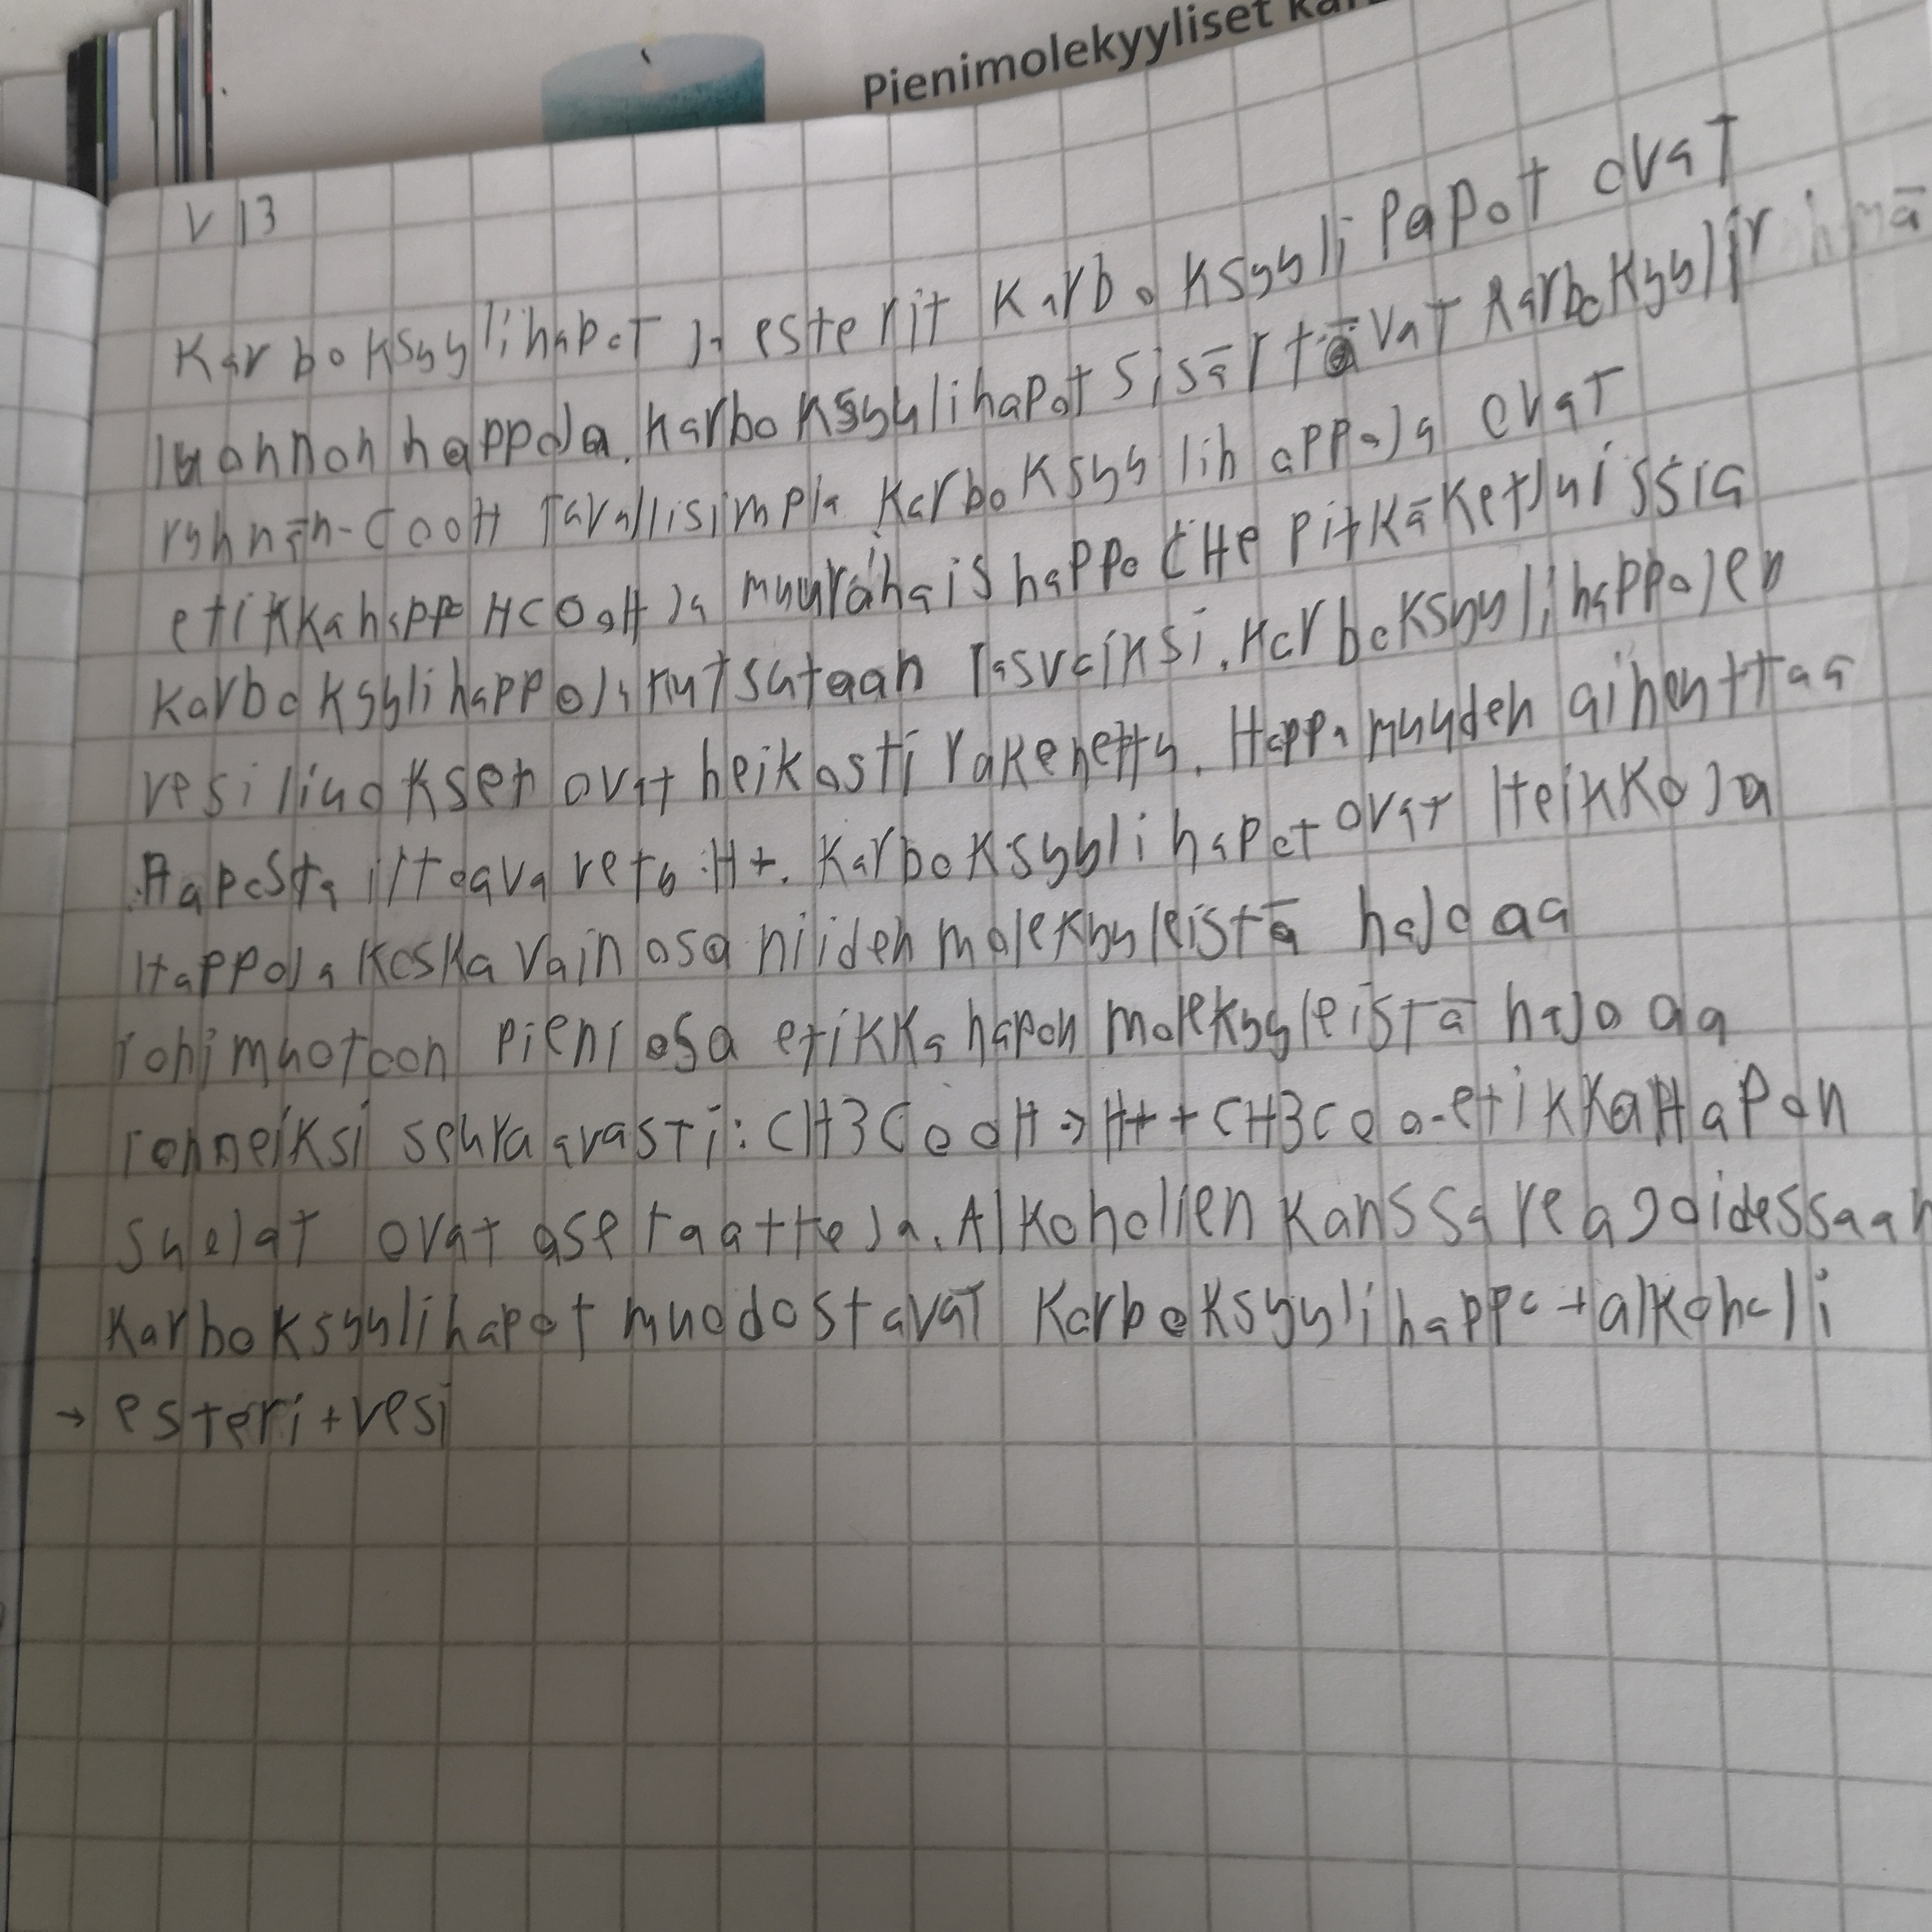 Pienimolekyyliset
V 13
Karboksyylihapot ja esterit Karboksyyli Papot ovat
luonnon happoja. Karboksyylihapot sisältävät karbokyylir hmä
ryhmän-COOH Tavallisimpia Karboksyylihappoja ovat
etikkahappo HCOOH ja muurahaishappo CHe pitkäketjuissia
karboksylihappoja kutsutaan rasvoiksi. Karboksyylihappojen
vesiliuoksen ovat heikosti rakenetty. Happamuuden aihenttaa
Haposta irtoava vety H+. Karboksyylihapot ovat Heikkoja
Happoja Koska vain osa niiden molekyyleistä hajoaa
ionimuotoon pieni osa etikkahapon molekyyleistä hajoaa
ionneiksi seuraavasti: CH3COOH → H+ + CH3COO-etikkaHapon
suolat ovat asetaatteja. Alkoholien kanssa reagoidessaan
Karboksyylihapot muodostavat Karboksyylihappo + alkoholi
→ esteri + vesi